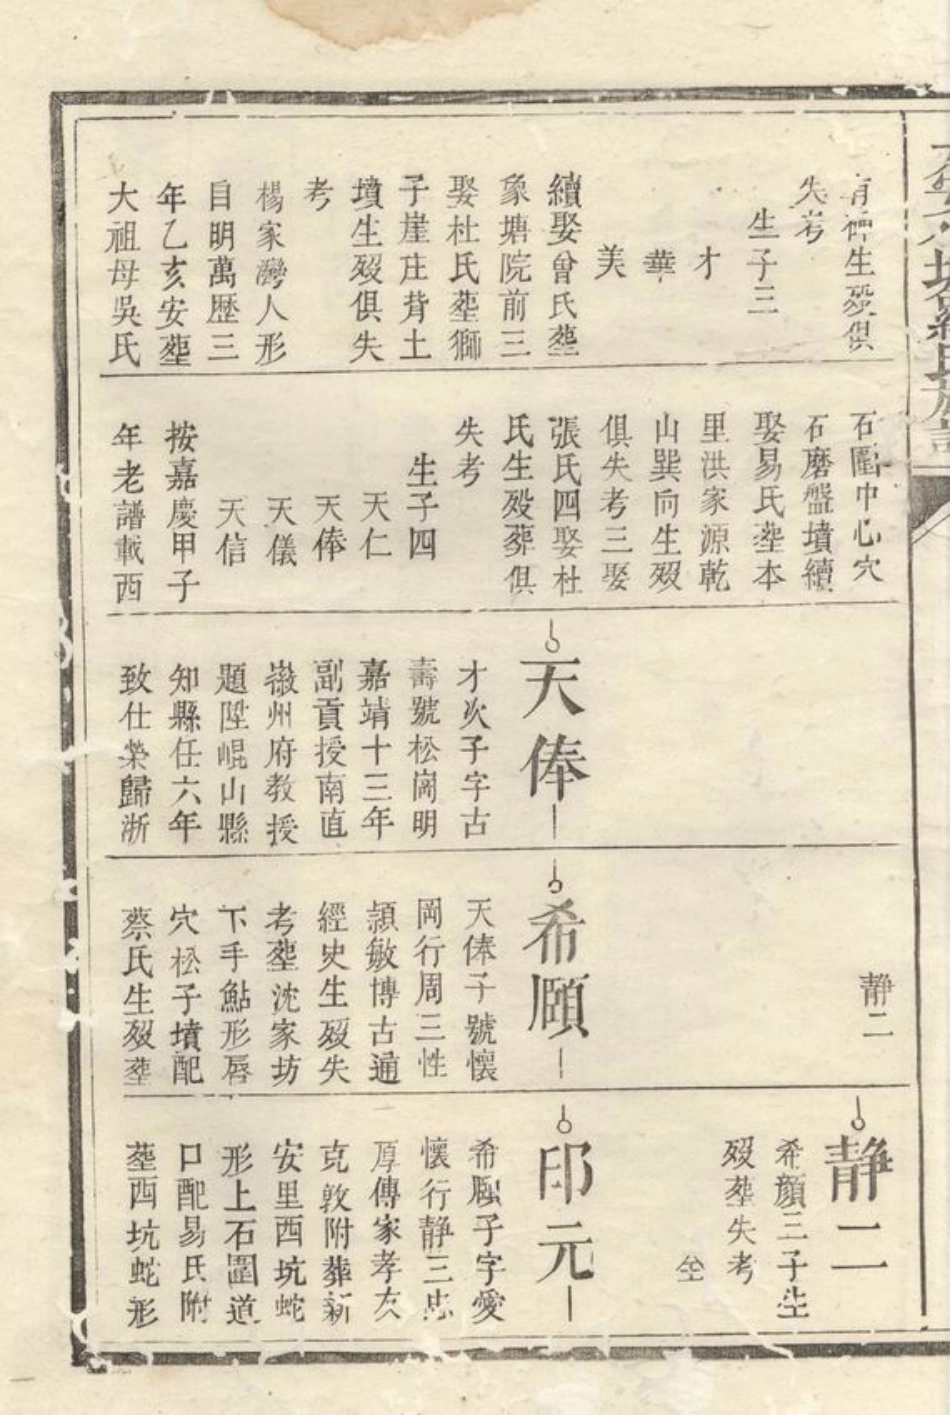 有神生歿俱
失考
生子三
才
華
美
續娶曾氏葬
象塘院前三
娶杜氏葬獅
子崖庄背土
墳生歿俱失
考
楊家灣人形
自明萬歷三
年乙亥安葬
大祖母吳氏
石圍中心穴
石磨盤墳續
娶易氏葬本
里洪家源乾
山巽向生歿
俱失考三娶
張氏四娶杜
氏生歿葬俱
失考
生子四
天仁
天俸
天儀
天信
按嘉慶甲子
年老譜載西
天俸
才次子字古
壽號松崗明
嘉靖十三年
副貢授南直
徽州府教授
題陞崐山縣
知縣任六年
致仕榮歸浙
靜二
希願
天俸子號懷
岡行周三性
頴敏博古通
經史生歿失
考塟沈家坊
下手鮎形唇
穴松子墳配
蔡氏生歿塟
靜二
希顏三子生
歿葬失考
印元
希願子字愛
懷行靜三忠
厚傳家孝友
克敦附葬新
安里西坑蛇
形上石圍道
口配易氏附
塟西坑蛇形